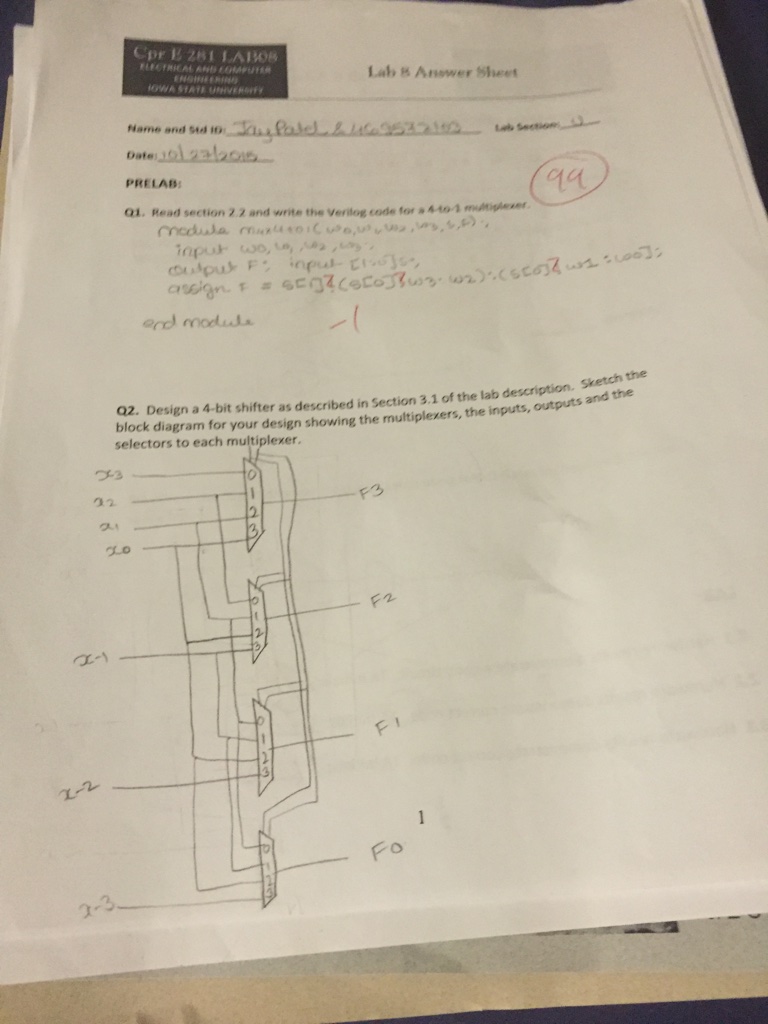 Cpr E 281 LAB08
ELECTRICAL AND COMPUTER
ENGINEERING
IOWA STATE UNIVERSITY
Lab 8 Answer Sheet
Name and Std ID: Jay Patel & Lab Section: U
Date: 10/27/2015
PRELAB:
99
Q1. Read section 2.2 and write the Verilog code for a 4-to-1 multiplexer.
module (w0, w1, w2, w3, S, F);
input w0, w1, w2, w3;
output F; input [1:0]S;
assign F = S[1]?(S[0]?w3:w2):(S[0]?w1:w0);
end module
-1
Q2. Design a 4-bit shifter as described in Section 3.1 of the lab description. Sketch the
block diagram for your design showing the multiplexers, the inputs, outputs and the
selectors to each multiplexer.
x3
0
x2
1
F3
x1
2
x0
3
0
F2
1
2
x-1
3
0
F1
1
2
x-2
3
1
0
F0
1
2
x-3
3